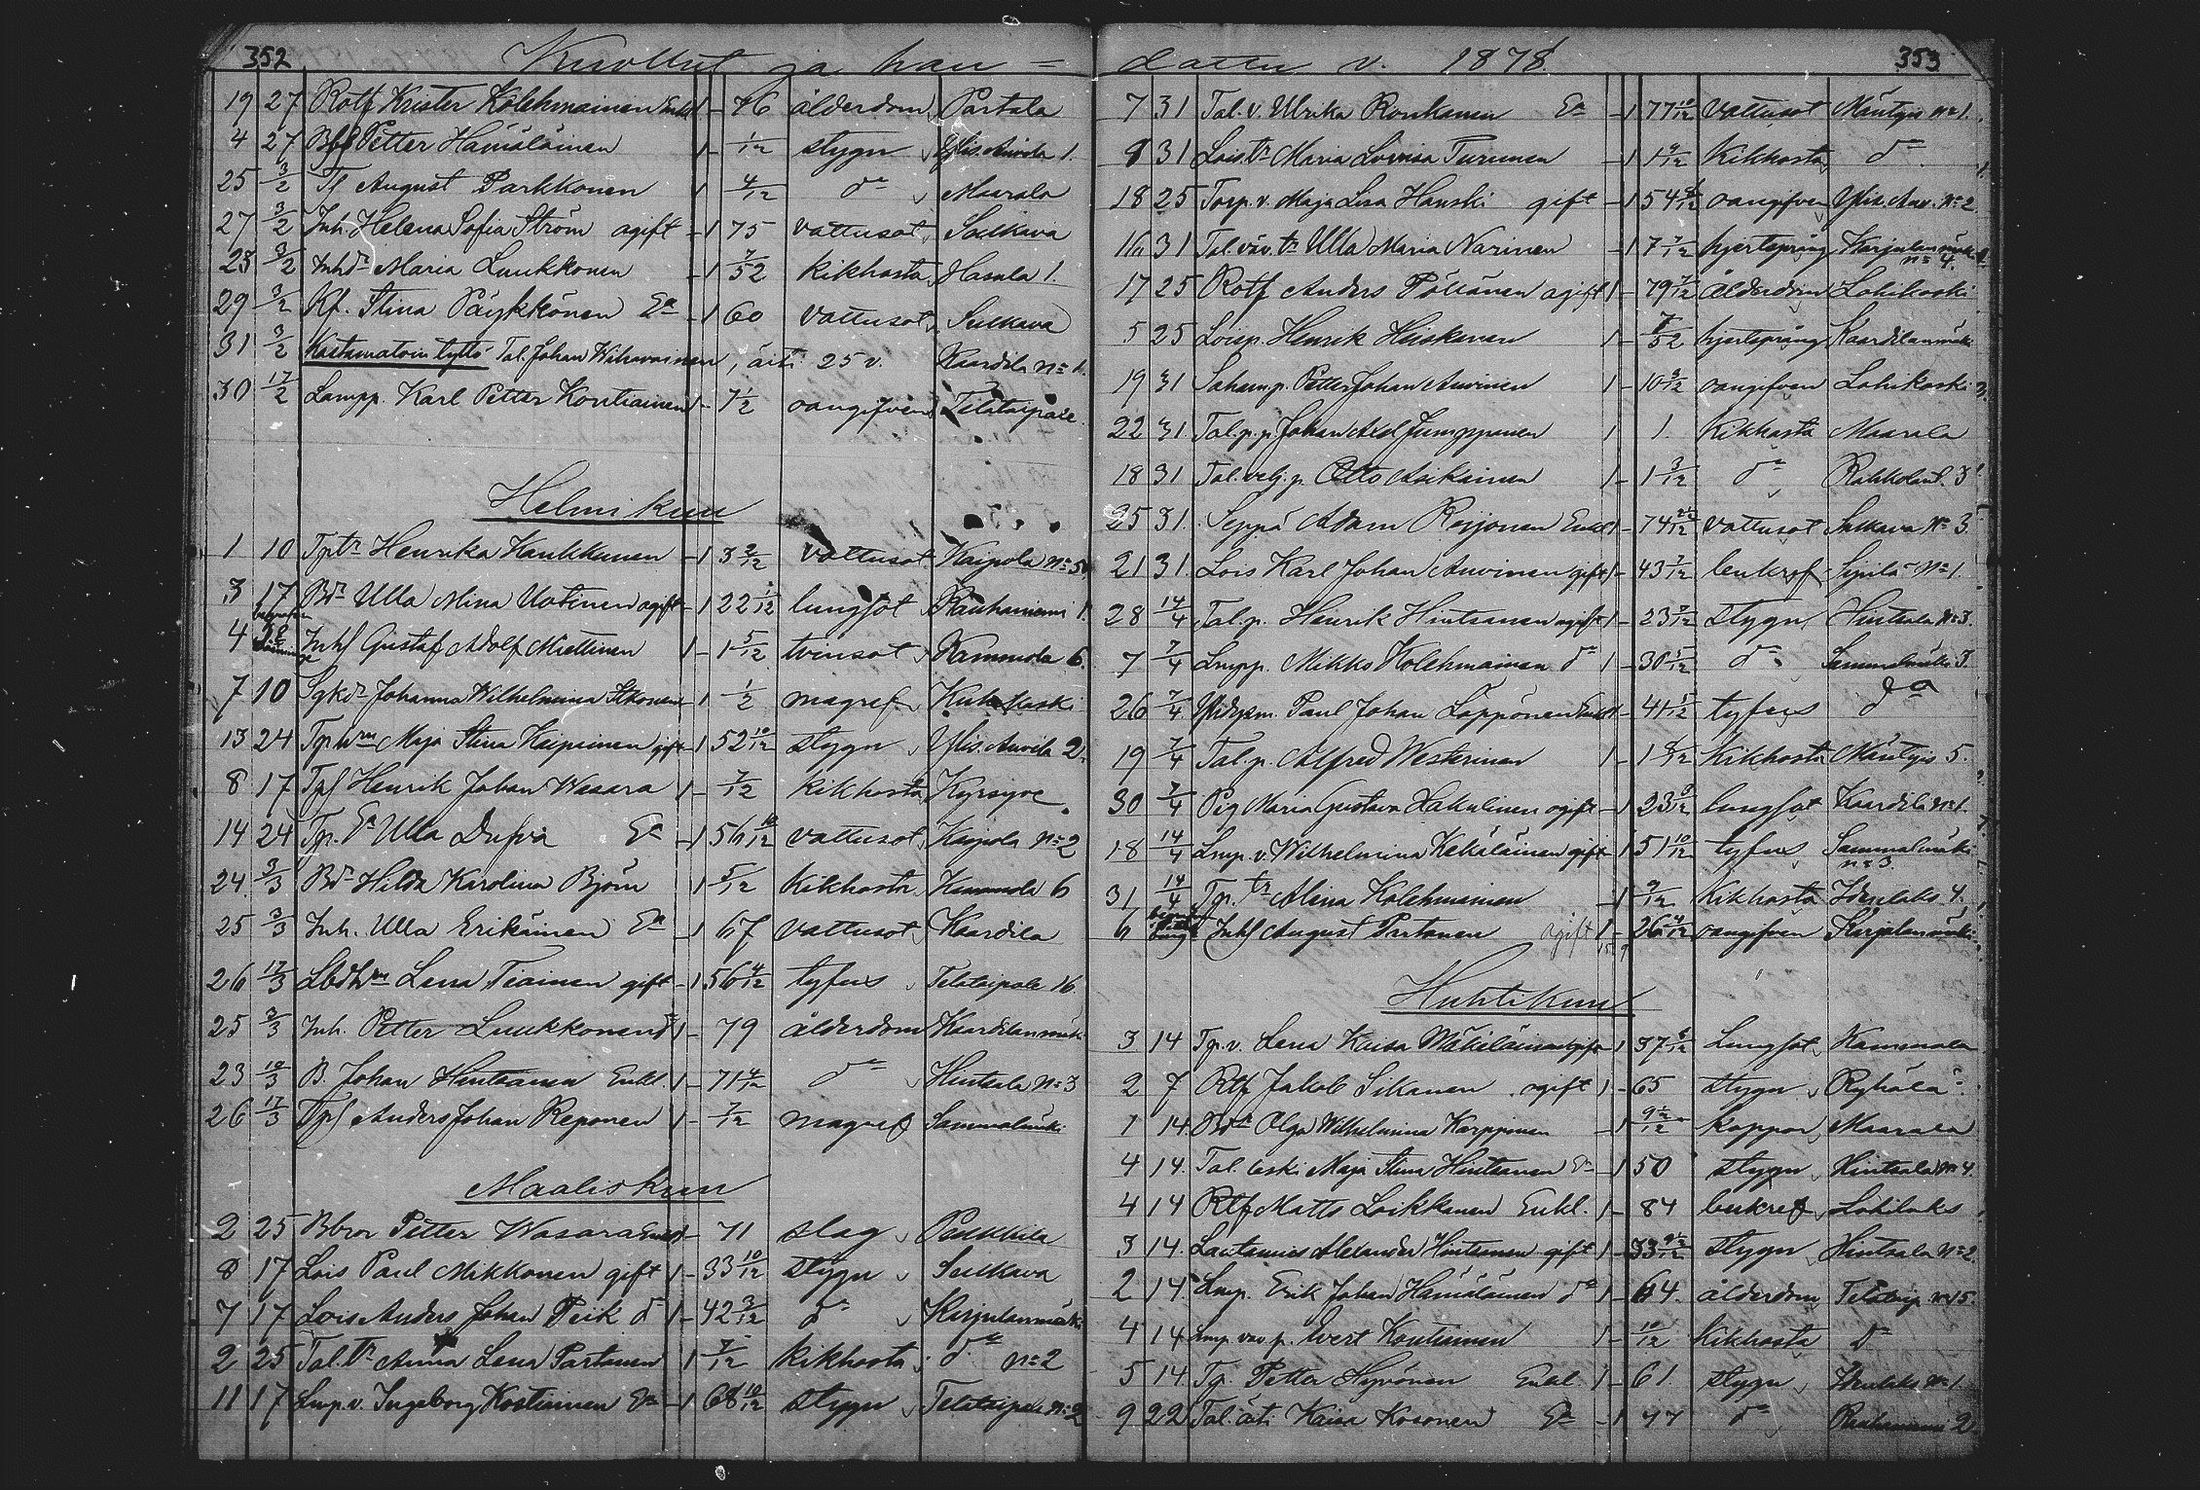 352 Kuolleet ja hau=
19 27 Rotf Krister Kolehmainen Enkl 1 - 76 ålderdom Partala
4 27 Petter Hämäläinen 1 - 1/12 stygn Ylis. Auvila 1.
25 3/2 August Parkkonen 1 4/12 d:o Maarala
27 3/2 Inh. Helena Sofia Ström ogift - 1 75 vattusot Sulkava
23 3/2 Inhdr Maria Luukkonen - 1 7/52 kikhosta Hasula 1.
29 3/2 Kf. Stina Päykkönen Ea - 1 60 vattusot Sulkava
31 3/2 Kastamatoin tyttö Tal. Johan Wihavainen, äiti 25 v. Kaardila No 1.
30 17/2 Lampp. Karl Petter Kontiainen 1 - 7 1/2 oangifven Telataipale
Helmikuu
1 10 Tptr Henrika Kaukkunen - 1 3 2/12 vattusot Kaipola No 5
3 17 Bdr Ulla Miina Uotinen ogift - 1 22 1/12 lungsot Rauhaniemi 1.
4 Inhs Gustaf Adolf Miettinen 1 - 1 5/12 tvinsot Kammola 6
7 10 Johanna Wilhelmina Itkonen - 1 1/2 magref
13 24 Maja Stina Kaipainen gift - 1 52 10/12 stygn Ylis. Auvila 2.
8 17 Tps Henrik Johan Wasara 1 - 7/12 kikhosta Kyrsyve
14 24 Tp. Ea Ulla Dufva Ea - 1 56 10/12 vattusot Kaipola No 2
24 3/3 Bdr Hilda Karolina Björn 1 5/12 kikhosta Kammola 6
25 3/3 Inh. Ulla Erikäinen Ea - 1 67 vattusot Kaardila
26 17/3 Lena Tiainen gift - 1 56 4/12 tyfus Telataipale 16
25 3/3 Inh. Petter Luukkonen 1 - 79 ålderdom Kaardilanmäki
23 10/3 B. Johan Hintsanen Enkl. 1 - 71 4/12 d:o Hintsala No 3
26 17/3 Tps Anders Johan Reponen 1 - 7/12 magref Sammalmäki
Maaliskuu
2 25 Bbror Petter Wasara Enkl 1 - 71 slag Partala
8 17 Lois Paul Mikkonen gift 1 - 33 10/12 stygn Sulkava
7 17 Lois Anders Johan Peik d:o 1 - 42 3/12 d:o Karjulanmäki
2 25 Tal. tr Anna Lena Partanen 1 7/12 kikhosta d:o No 2
11 17 Lmp. v. Ingeborg Kostiainen Ea - 1 68 10/12 stygn Telataipale No 2
dattu v. 1878. 353
7 31 Tal. v. Ulrika Ronkanen Ea - 1 77 10/12 vattusot Mäntyis No 1.
9 31 Loistr Maria Lovisa Turunen - 1 1 9/12 Kikhosta d:o
18 25 Torp. v. Maja Lisa Hanski gift - 1 54 8/12 oangifven Ylis. Auv. No 2
16 31 Tal. väv. tr Ulla Maria Narinen - 1 7 7/12 hjertsprång Karjulanmäki No 4.
17 25 Rotf Anders Pöllänen ogift 1 - 79 7/12 ålderdom Lohikoski
5 25 Loisp. Henrik Heiskanen 1 - 7/52 hjertsprång Kaardilanmäki
19 31 Petter Johan Auvinen 1 - 10 3/12 oangifven Lohikoski
22 31 Tal. p. p. Johan Axel Jumppanen 1 1. Kikhosta Maarala
18 31 Tal. velj. p. Otto Asikainen 1 - 1 3/12 d:o
25 31. Seppä Adam Reijonen Enkl 1 - 74 vattusot Sulkava No 3.
21 31. Lois Karl Johan Auvinen gift 1 - 43 7/12 bukref
28 14/4 Tal. p. Henrik Hintsanen ogift 1 - 23 9/12 stygn Hintsala No 3.
7 7/4 Lmpp. Mikko Kolehmainen d:o 1 - 30 5/12 d:o Sammalmäki 3.
26 7/4 Paul Johan Löppönen Enkl 1 - 41 5/12 tyfus d:o
19 7/4 Tal. p. Alfred Westerinen 1 - 1 8/12 Kikhosta Mäntyis 5.
30 7/4 Pig Maria Gustava Hakulinen ogift - 1 23 9/12 lungsot Kaardila No 1.
18 14/4 Lmp. v. Wilhelmina Kekäläinen gift - 1 51 10/12 tyfus Sammalmäki No 3
31 14/4 Tp. tr Alina Kolehmainen - 1 9/12 Kikhosta Idenlaks 4.
6 Inhs August Partanen ogift 1 - 26 4/12 oangifven Karjulanmäki
Huhtikuu
3 14 Tp. v. Lena Kaisa Mäkeläinen gift - 1 37 8/12 Lungsot Kammola
2 7 Rtf Jakob Sikanen ogift 1 - 65 stygn Ryhälä
1 14 Bdtr Olga Wilhelmina Karppinen - 1 koppor Maarala
4 14. Tal. leski Maja Stina Hintsanen Ea - 1 50 stygn Hintsala No 4.
4 14 Rtf Matts Loikkanen Enkl. 1 - 84 bukref Lohilaks
3 14. Lautamies Alexander Hintsanen gift 1 - 33 stygn Hintsala No 2
2 14 Lmp. Erik Johan Hämäläinen d:o 1 - 64. ålderdom Telataip No 15.
4 14 Lmp. väv p. Evert Kontiainen 1 - 10/12 Kikhosta d:o
5 14. Tp. Petter Hyvönen Enkl. 1 - 61. stygn Idenlaks No 1
9 22 Tal. äiti Kaisa Kosonen Ea - 1 77 d:o Rauhaniemi 2